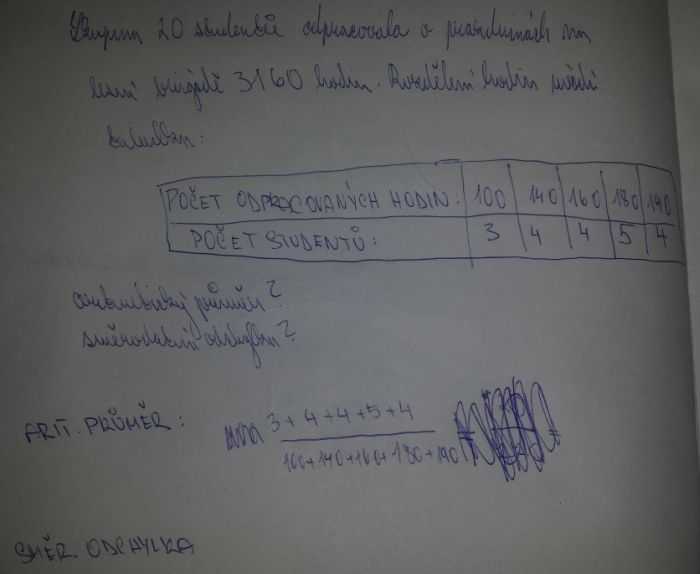 Skupina 20 studentů odpracovala o prázdninách na
lesní brigádě 3160 hodin. Rozdělení hodin uvádí
tabulka:
POČET ODPRACOVANÝCH HODIN: 100 140 160 180 190
POČET STUDENTŮ: 3 4 4 5 4
aritmetický průměr?
směrodatní odchylka?
ARIT. PRŮMĚR: 3+4+4+5+4
100+140+160+180+190
SMĚR. ODCHYLKA